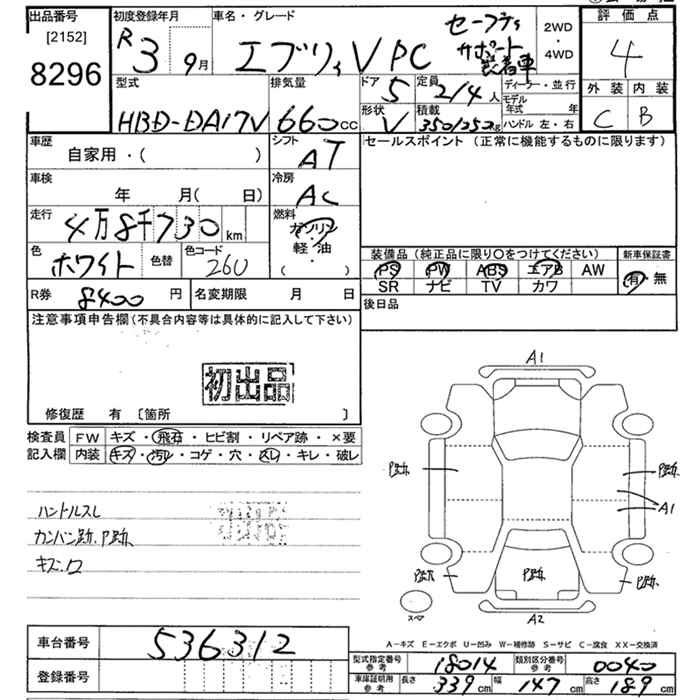 出品番号
[2152]
8296
初度登録年月
R 3 9月
車名・グレード
エブリィ V PC
セーフティ
サポート
装着車
2WD
・
4WD
評価点
4
外装 内装
C B
型式
HBD-DA17V
排気量
660cc
ドア 5
定員 2/4人
形状 V
積載 350/250kg
ディーラー・並行
モデル年式 年
ハンドル 左・右
車歴
自家用・( )
シフト
AT
車検
年 月(日)
冷房
AC
走行
4万8千730km
燃料
ガソリン
軽・油
( )
色
ホワイト
色替
色コード
260
セールスポイント(正常に機能するものに限ります)
装備品(純正品に限り〇をつけてください)
PS PW ABS エアB AW
SR ナビ TV カワ
新車保証書
有・無
R券 8400円
名変期限 月 日
後日品
注意事項申告欄(不具合内容等は具体的に記入して下さい)
初出品
修復歴 有〔箇所 〕
検査員記入欄
FW キズ・飛石・ヒビ割・リペア跡・×要
内装 キズ・汚レ・コゲ・穴・スレ・キレ・破レ
ハンドルスレ
カンバン跡、P跡
キズ、ワ
A1
P跡
P跡
A1
P跡
P跡
P跡
スペア
A2
A-キズ E-エクボ U-凹み W-補修跡 S-サビ C-腐食 XX-交換済
車台番号 536312
登録番号
型式指定番号参考 18014
類別区分番号参考 0040
車庫証明用参考 長さ 339cm 幅 147cm 高さ 189cm